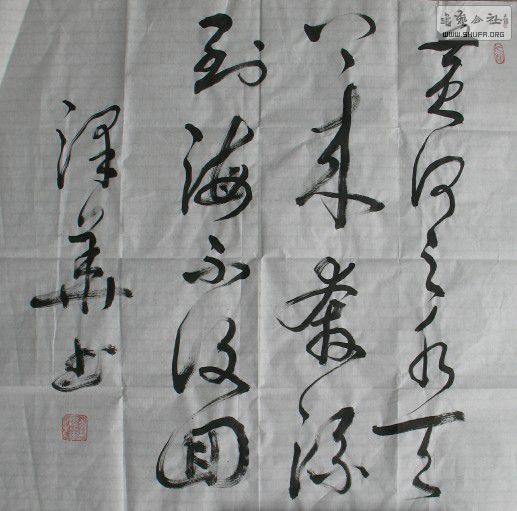 黄河之水天
上来奔流
到海不復回
泽华书
書法公社
WWW.SHUFA.ORG